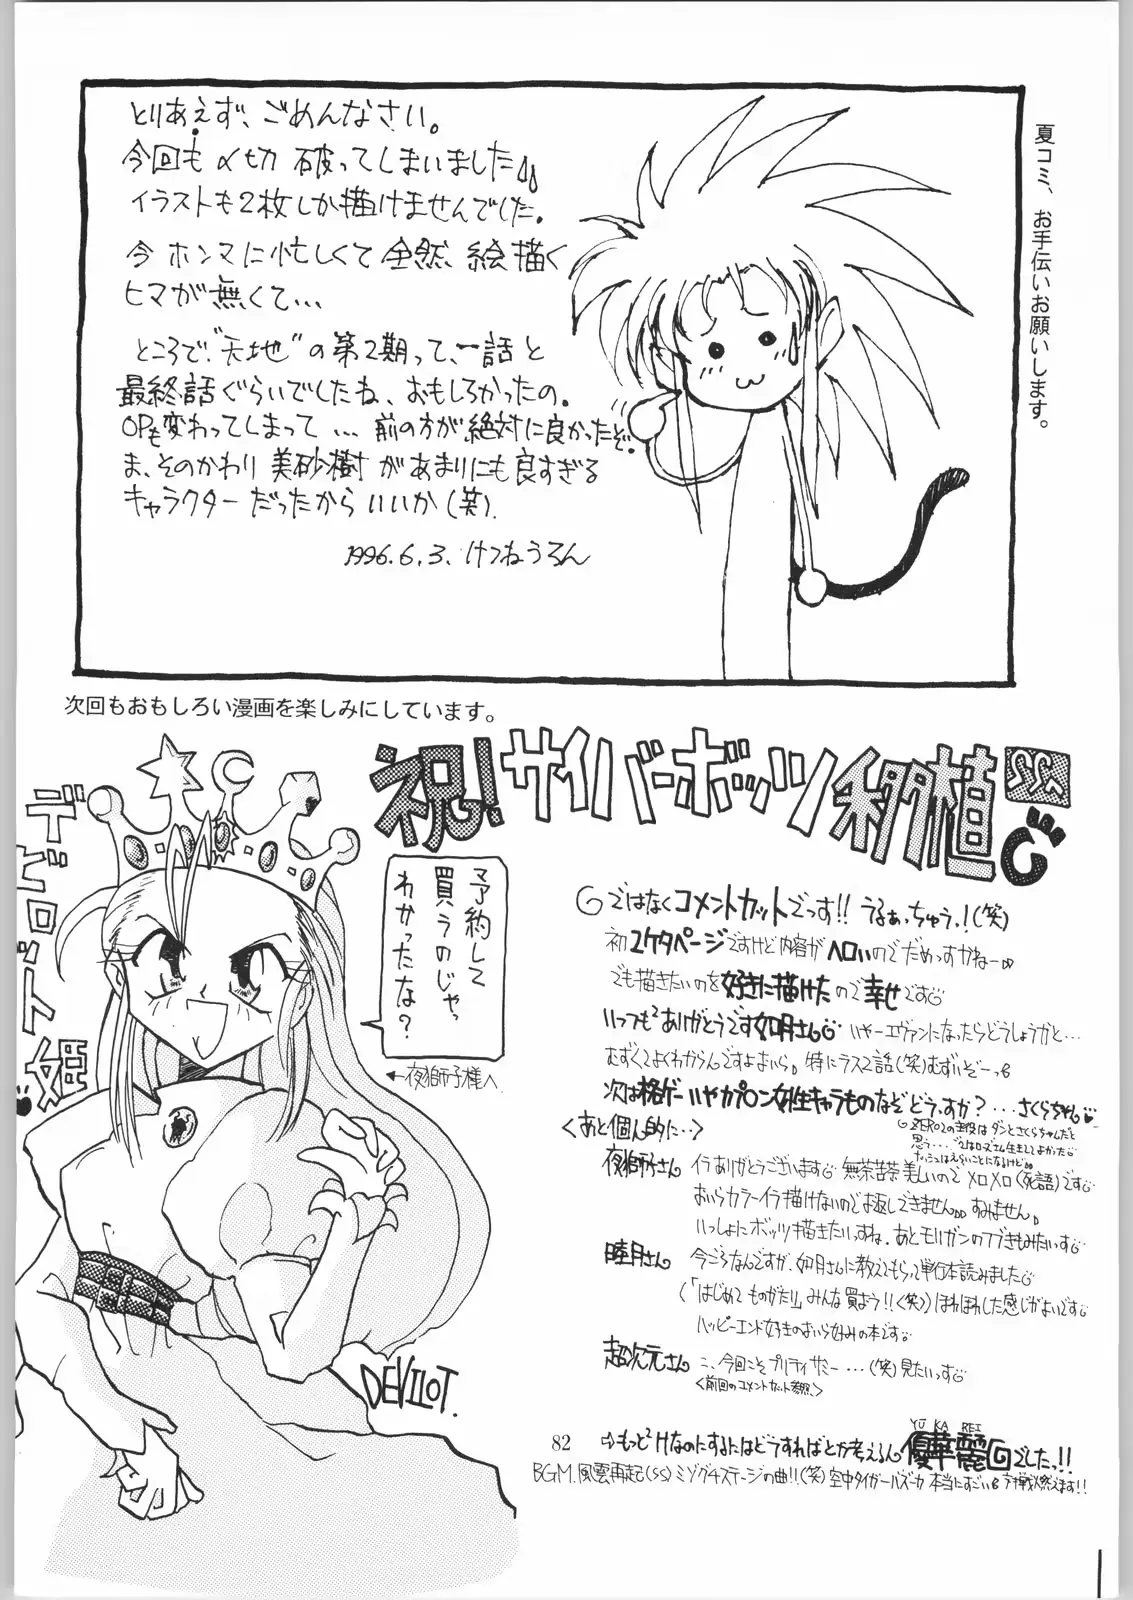 とりあえず、ごめんなさい。
今回も〆切 破ってしまいました
イラストも2枚しか描けませんでした。
今ホンマに忙しくて全然、絵描く
ヒマが無くて…
ところで、“天地”の第2期って、一話と
最終話ぐらいでしたね、おもしろかったの。
OPも変わってしまって…前の方が絶対に良かったぞ。
ま、そのかわり美砂樹があまりにも良すぎる
キャラクターだったからいいか(笑).
1996.6.3、けつねうろん
夏コミ、お手伝いお願いします。
次回もおもしろい漫画を楽しみにしています。
祝!サイバーボッツ移植
SS
デビロット姫
予約して
買うのじゃっ
わかったな?
←夜獅子様へ
DEVILOT.
ではなくコメントカットでっす!! うるぁっちゅう!(笑)
初2ケタページですけど内容がヘロいのでだめっすかねー
でも描きたいのを好きに描けたので幸せです
いつも²ありがとうです如月さん いやーエヴァンになったらどうしようかと…
むずくてよくわからんですよまいら。特にラス2話(笑)むずいぞーっ
次は格ゲーいやカプコン女性キャラものなぞどうっすか?…さくらちゃん
ZERO2の主役はダンとさくらちゃんだと
思う…
<あと個人的に…>
夜獅子さん イラありがとうございます 無茶苦茶美しいのでメロメロ(死語)です
おいらカラーイラ描けないのでお返しできません すみません。
いっしょにボッツ描きたいっすね。あとモリガンのつづきもみたいっす
睦月さん 今ごろなんですが、如月さんに教えてもらって単行本読みました
(「はじめてものがたり」みんな買よう!!<笑>)ほわほわした感じがよいです
ハッピーエンド好きのおいら好みの本です
超次元さん こ、今回こそプリティサミー…(笑)見たいっす
<前回のコメントカット参照>
82
⇨もっと²Hなのにするにはどうすればとか考えるん
YU KA REI
優華麗
でしたっ!!
BGM.風雲再起(SS)ミゾグチステージの曲!!(笑)空中タイガーバズーカ本当にすごい 対戦燃えます!!